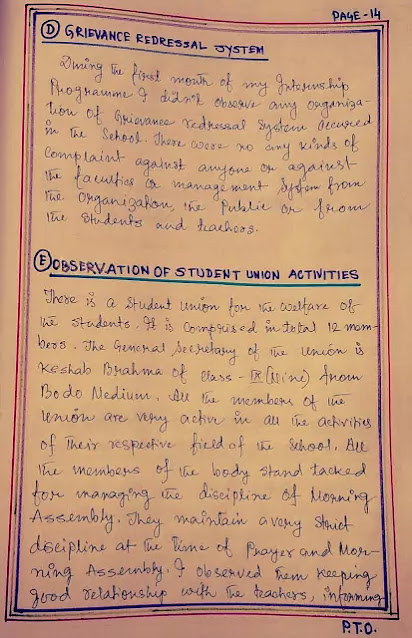 PAGE-14
(D) GRIEVANCE REDRESSAL SYSTEM
During the first month of my Internship
Programme I didn't observe any organiza-
tion of Grievance redressal System occured
in the School. There were no any kinds of
Complaint against anyone or against
the faculties or management System from
the Organization, the Public or from
the Students and teachers.
(E) OBSERVATION OF STUDENT UNION ACTIVITIES
There is a student union for the welfare of
the students. It is comprised in total 12 mem-
bers. The General Secretary of the Union is
Keshab Brahma of class - IX (Nine) from
Bodo Medium. All the members of the
Union are very active in all the activities
of their respective field of the School. All
the members of the body stand tacked
for managing the discipline of Morning
Assembly. They maintain a very strict
discipline at the time of Prayer and Mor-
ning Assembly. I observed them keeping
good relationship with the teachers, informing
P.T.O.